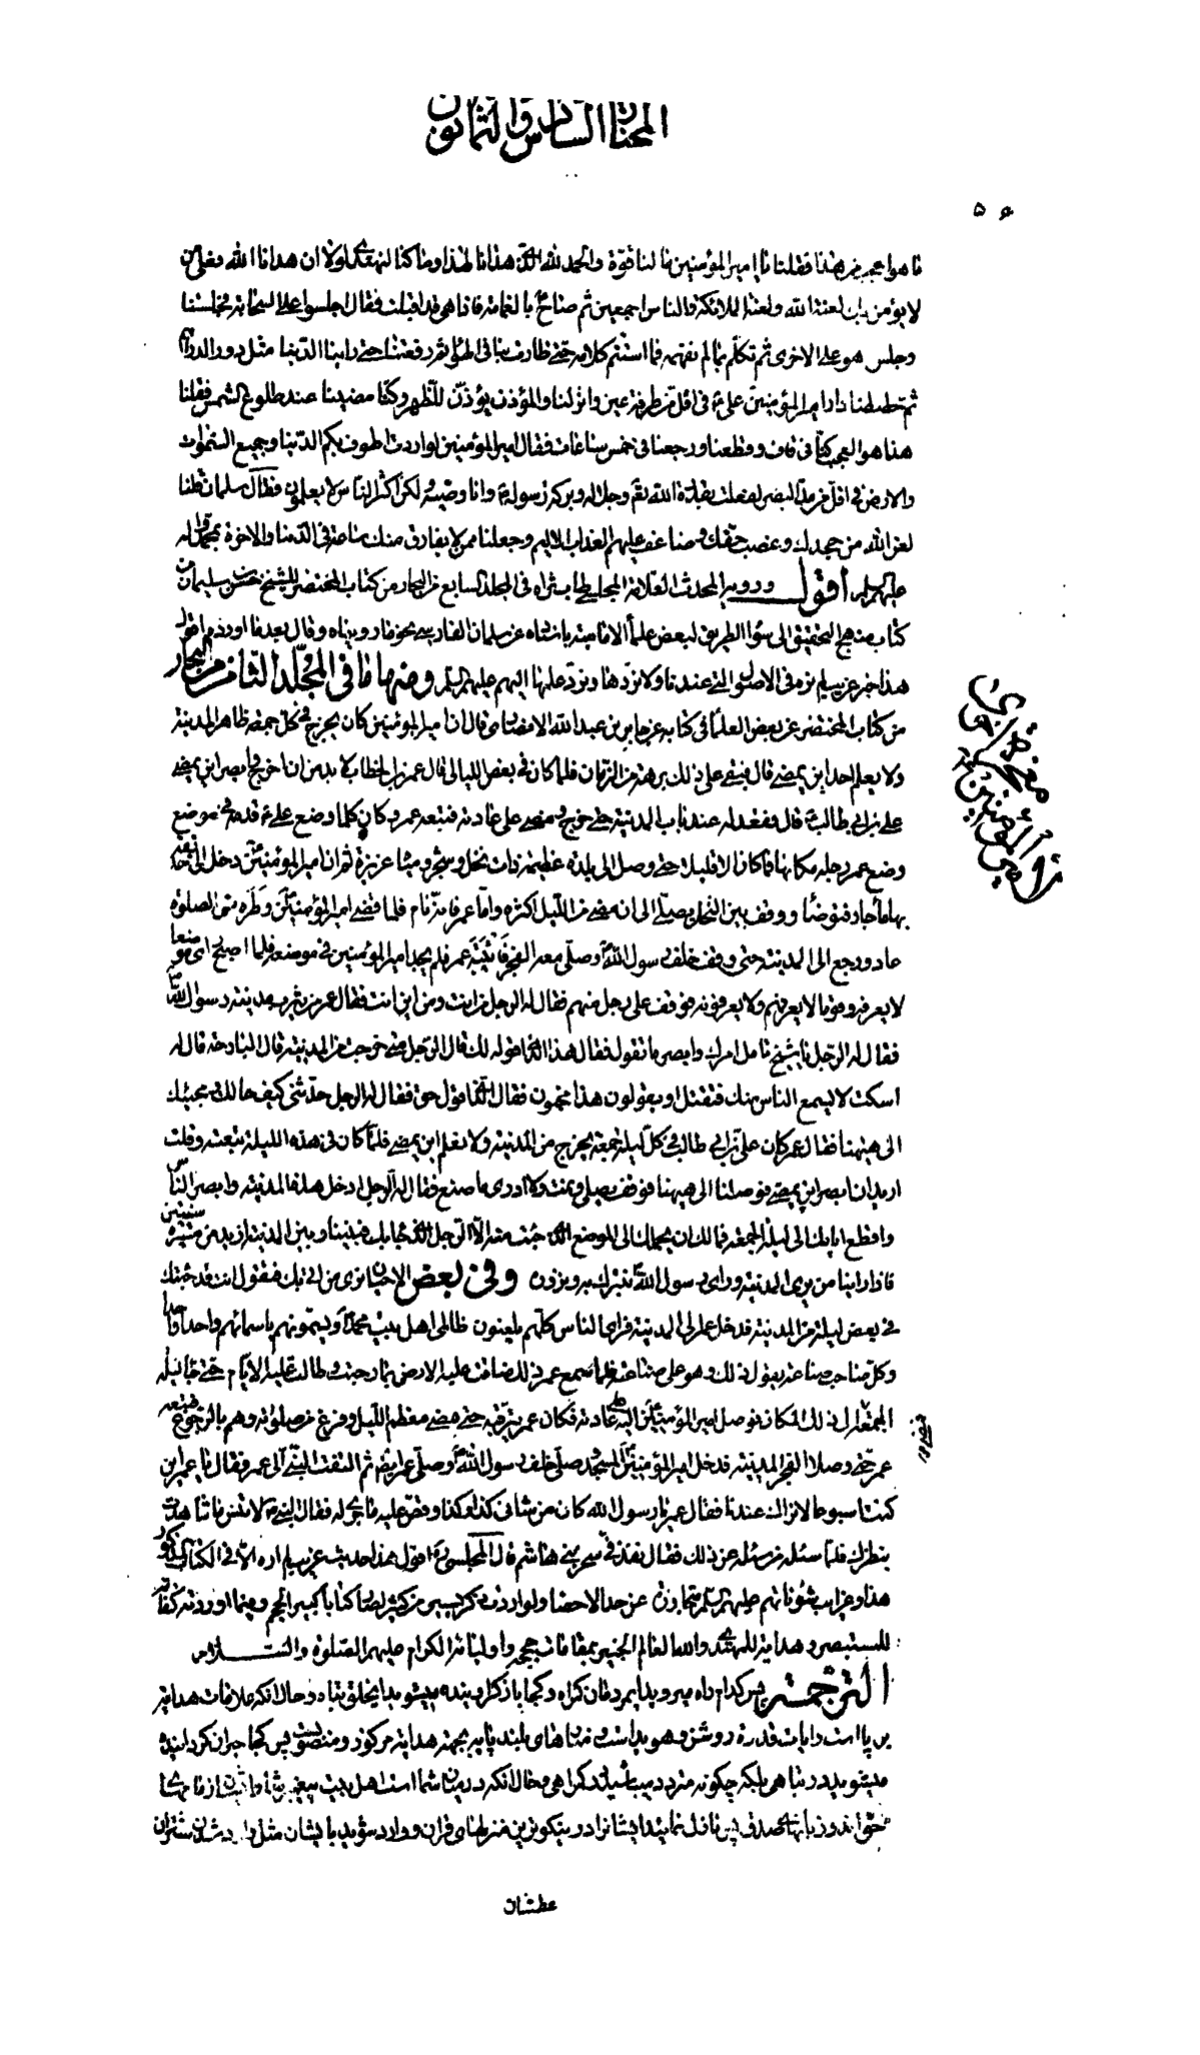 المختار السادس والثمانون
٥٦
ما هو اعجب من هذا فقلنا يا امير المؤمنين ما لنا قوة والحمد لله الذى هدانا لهذا وما كنا لنهتدى لولا ان هدانا الله وعلى من
لا يؤمن بك لعنة الله ولعنة الملائكة والناس اجمعين ثم صاح بالغمامة فاذا هى قد اقبلت فقال اجلسوا على السحابة فجلسنا
وجلس هو على الاخرى ثم تكلم بما لم نفهمه فما استتم كلامه حتى طارت بنا فى الهواء ثم رفعتنا حتى راينا الدنيا مثل دور الدرهم
ثم حطتنا دار امير المؤمنين على ع فى اقل من طرفة عين وانزلنا والمؤذن يؤذن للظهر وكنا مضينا عند طلوع الشمس فقلنا
هذا هو العجب كنا فى قاف وقطعنا ورجعنا فى خمس ساعات فقال امير المؤمنين لو اردت اطوف بكم الدنيا وجميع السموات
والارض فى اقل من مد البصر لفعلت بقدرة الله تعالى وجلاله وبركة رسوله وانا وصيه ولكن اكثر الناس لا يعلمون فقال سلمان قلنا
لعن الله من جحدك وغصب حقك وضاعف عليهم العذاب الاليم وجعلنا ممن لا يفارق منك ساعة فى الدنيا والاخرة بمحمد واله
عليهم السلم اقول ورويه المحدث العلامة المجلسى طاب ثراه فى المجلد السابع من البحار من كتاب المحتضر للشيخ حسن بن سليمان من
كتاب منهج التحقيق الى سواء الطريق لبعض علماء الامامية باسناده عن سلمان الفارسى بنحو ما رويناه وقال بعد ما اورده اقول
هذا خبر غريب لم نره فى الاصول التى عندنا ولا نردها ونرد علمها اليهم عليهم السلم ومنها ما فى المجلد الثامن من البحار
من كتاب المحتضر عن بعض العلماء فى كتابه عن جابر بن عبد الله الانصارى قال ان امير المؤمنين كان يخرج فى كل جمعة ظاهر المدينة
ولا يعلم احد اين يمضى قال فبقى على ذلك برهة من الزمان فلما كان فى بعض الليالى قال عمر بن الخطاب لا بد من ان اخرج وابصر اين يمضى
على بن ابى طالب ع قال فقعد له عند باب المدينة حتى خرج ومضى على عادته فتبعه عمر وكان كلما وضع على ع قدمه فى موضع
وضع عمر رجله مكانها فما كان الا قليلا حتى وصل الى بلدة عظيمة ذات نخل وشجر ومياه غزيرة ثم ان امير المؤمنين ع دخل الى حديقة
بها ماء جار فتوضا ووقف بين النخل يصلى الى ان مضى من الليل اكثره واما عمر فانه نام فلما قضى امير المؤمنين ع وطره من الصلوة
عاد ورجع الى المدينة حتى وقف خلف رسول الله ص وصلى معه الفجر فانتبه عمر فلم يجد امير المؤمنين فى موضعه فلما اصبح راى موضعا
لا يعرفه وقوما لا يعرفهم ولا يعرفونه فوقف على رجل منهم فقال له الرجل من انت ومن اين انت فقال عمر من يثرب مدينة رسول الله ص
فقال له الرجل يا شيخ تامل امرك وابصر ما تقول فقال هذا الذى اقوله لك قال الرجل متى خرجت من المدينة قال البارحة قال له
اسكت لا يسمع الناس منك فتقتل او يقولون هذا مجنون فقال الذى اقول حق فقال له الرجل حدثنى كيف حالك ومجيئك
الى هيهنا فقال عمر كان على بن ابى طالب فى كل ليلة جمعة يخرج من المدينة ولا نعلم اين يمضى فلما كان فى هذه الليلة تبعته وقلت
اريد ان ابصر اين يمضى فوصلنا الى هيهنا فوقف يصلى ونمت ولا ادرى ما صنع فقال له الرجل ادخل هذه المدينة وابصر الناس
واقطع ايامك الى ليلة الجمعة فمالك من يحملك الى الموضع الذى جئت منه الا الرجل الذى جاء بك فبيننا وبين المدينة ازيد من مسيرة سنتين
فاذا راينا من يرى المدينة وراى رسول الله ص نتبرك به ونزوره وفى بعض الاحيان نرى من اتى بك فنقول انت قد جئتك
فى بعض ليلة من المدينة فدخل عمر الى المدينة فراى الناس كلهم يلعنون ظالمى اهل بيت محمد ص ويسمونهم باسمائهم واحدا واحدا
وكل صاحب صناعة يقول ذلك وهو على صناعته فلما سمع عمر ذلك ضاقت عليه الارض بما رحبت وطالت عليه الايام حتى جاء ليلة
الجمعة فمضى الى ذلك المكان فوصل امير المؤمنين ع اليه على عادته فكان عمر يترقبه حتى مضى معظم الليل وفرغ من صلوته وهم بالرجوع فتبعه
عمر حتى وصلا الفجر المدينة فدخل امير المؤمنين ع المسجد وصلى خلف رسول الله ص وصلى عمر ايضا ثم التفت النبى الى عمر فقال يا عمر اين
كنت اسبوعا لا نراك عندنا فقال عمر يا رسول الله كان من شانى كذا وكذا وقص عليه ما جرى له فقال النبى ص لا تنس ما شاهدت
بنظرك فلما سئله من سئله عن ذلك فقال نفذ فى سحر بنى هاشم قال المجلسى ره اقول هذا حديث غريب لم اره الا فى الكتاب المذكور
هذا وغرايب شئوناتهم عليهم السلم متجاوزة عن حد الاحصاء ولو اردت ذكر يسير من كثير لصار كتابا كبير الحجم وفيما اوردته كفاية
للمستبصر وهداية للمهتدى والله العالم الخبير بمقامات حججه واوليائه الكرام عليهم الصلوة والسلام
الترجمة پس كدام راه ميرويد ايمردمان گمراه وكجا بازگردانيده ميشويد ايخلق تباه وحال انكه علامات هداية
برپا است وايات قدرة روشن وهويدا است ومنارهاى بلند پايه بجهة هداية مركوز ومنصوبست پس كجا حيران گردانيده
ميشويد در تباهى بلكه چگونه متردد ميباشيد در گمراهى وحال انكه در ميان شما است اهل بيت پيغمبر شما وايشان ازمامهاى
حق اند وزبانهاى صدق پس نازل نمائيد ايشانرا در نيكوترين منزلهاى قران ووارد شويد بايشان مثل وارد شدن شتران
عطشان
معجزة اخرى
لامير المؤمنين